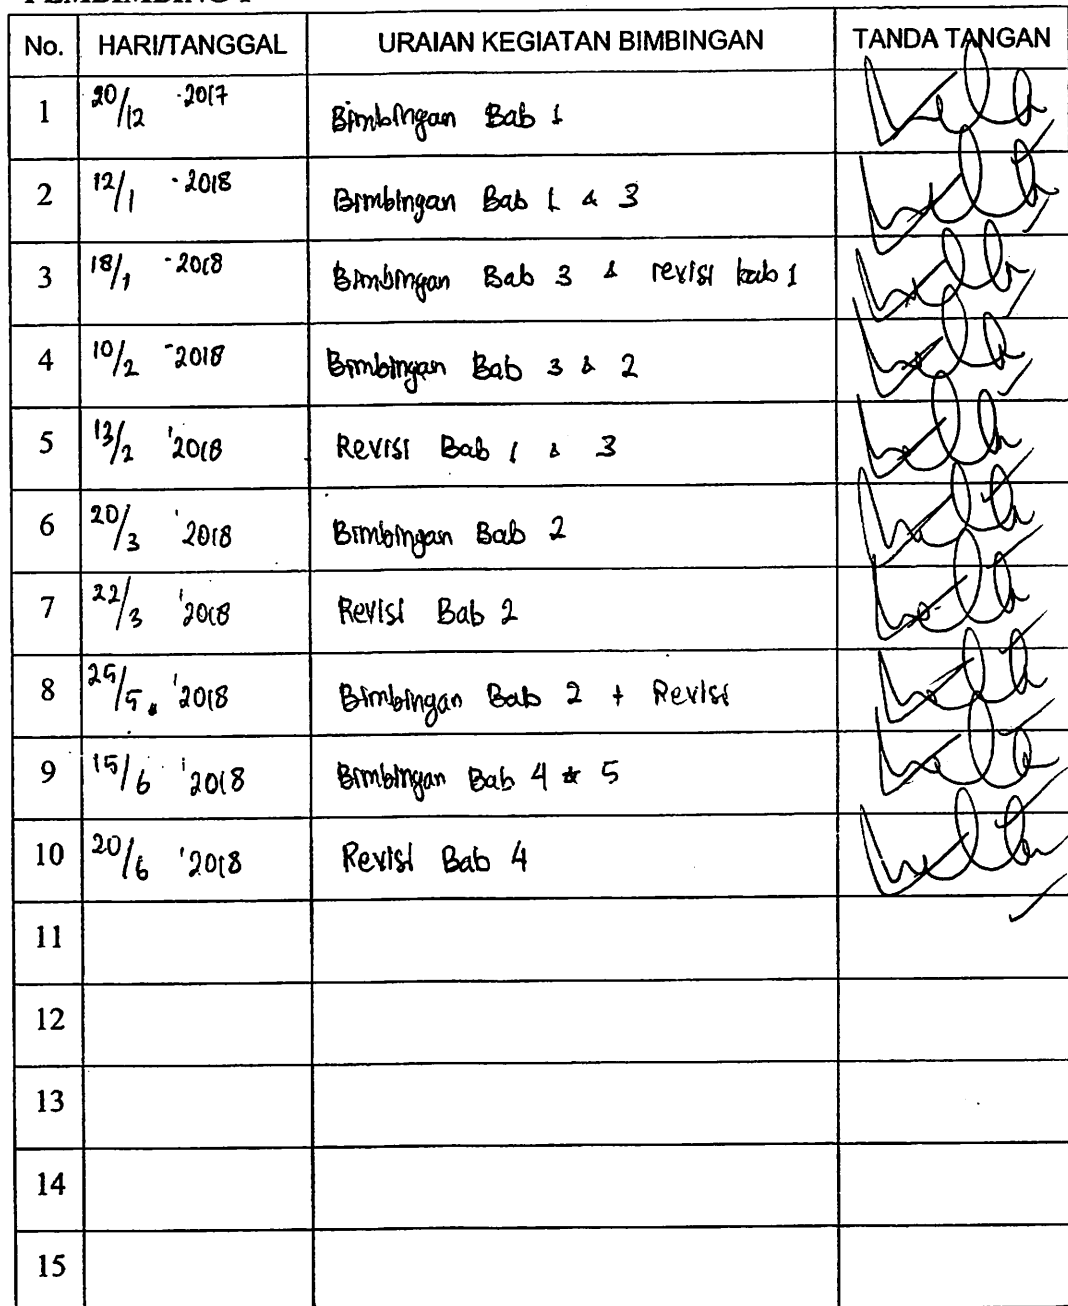 No. HARI/TANGGAL URAIAN KEGIATAN BIMBINGAN TANDA TANGAN
1 20/12 -2017 Bimbingan Bab 1
2 12/1 -2018 Bimbingan Bab 1 & 3
3 18/1 -2018 Bimbingan Bab 3 & revisi bab 1
4 10/2 -2018 Bimbingan Bab 3 & 2
5 13/2 '2018 Revisi Bab 1 & 3
6 20/3 '2018 Bimbingan Bab 2
7 22/3 '2018 Revisi Bab 2
8 25/5 '2018 Bimbingan Bab 2 + Revisi
9 15/6 '2018 Bimbingan Bab 4 & 5
10 20/6 '2018 Revisi Bab 4
11
12
13
14
15